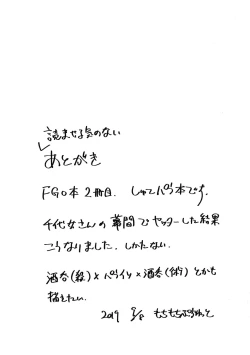 読ませる気のない
あとがき
FGO本2冊目. しゅてパラ本です.
千代女さんの幕間でヤッターした結果
こうなりました. しかたない.
酒呑(殺)×パライソ×酒呑(術)とかも
描きたい.
2019